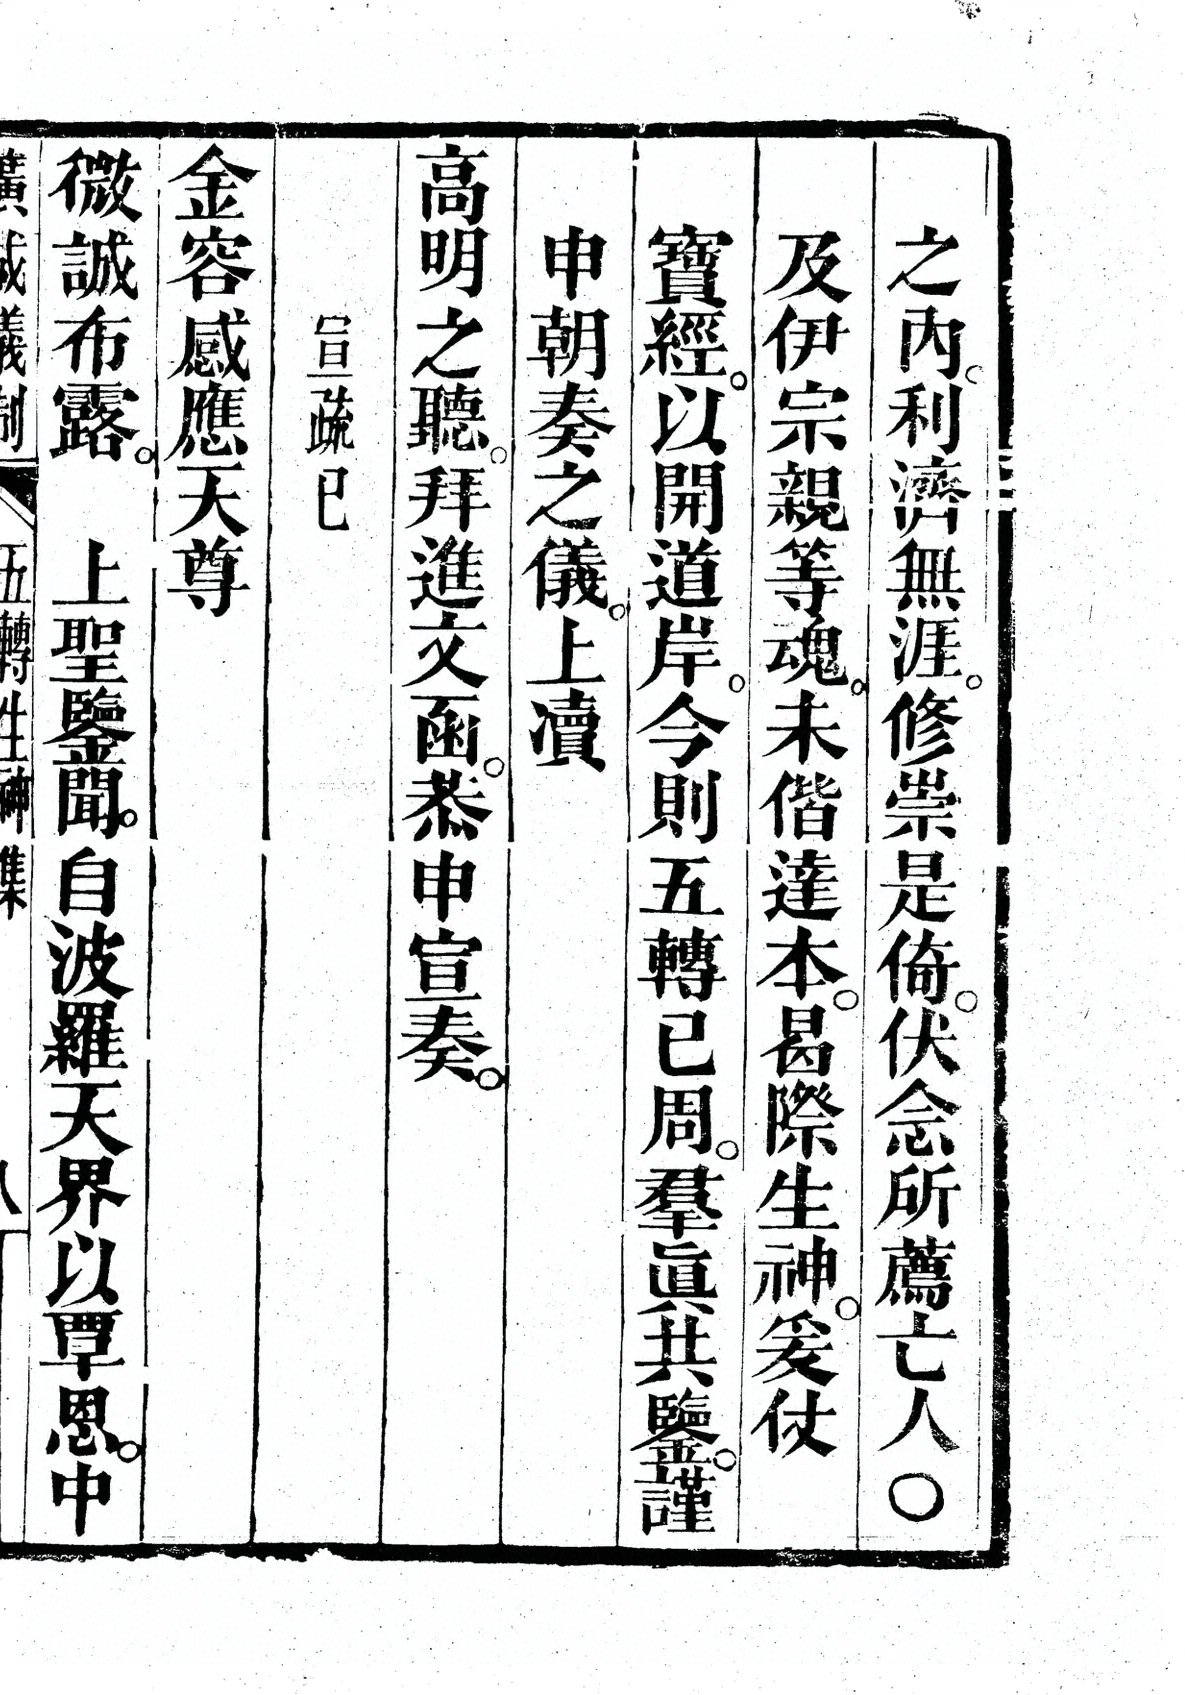 之內。利濟無涯。修崇是倚。伏念所薦亡人〇
及伊宗親等魂。未偕達本。曷際生神。爰仗
寶經。以開道岸。今則五轉已周。羣眞共鑒。謹
申朝奏之儀。上瀆
高明之聽。拜進文函。恭申宣奏。
宣疏已
金容感應天尊
微誠布露。　上聖鑒聞。自波羅天界以覃恩。中
廣成儀制　五轉生神集　八